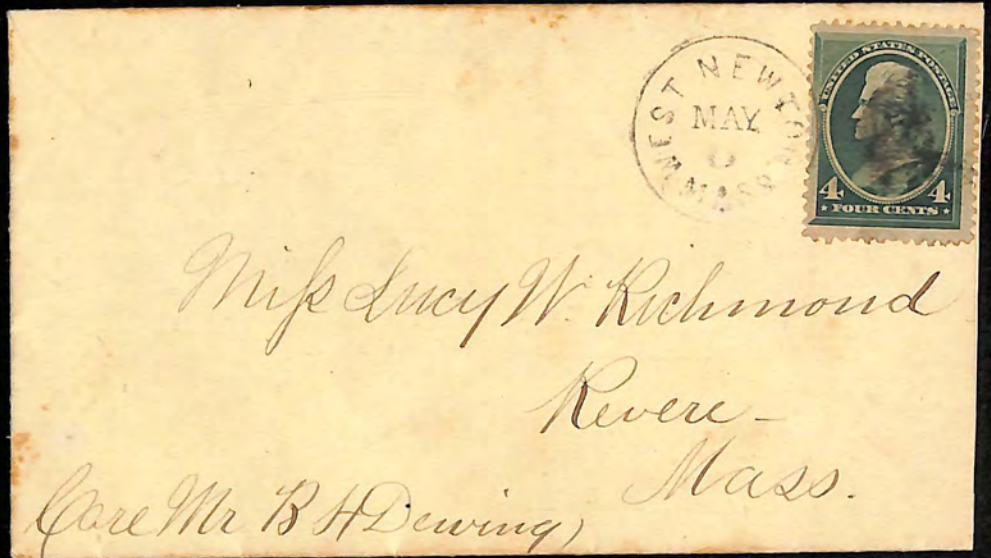 WEST NEWTON
MAY
MASS
UNITED STATES POSTAGE
4 4
FOUR CENTS
Miss Lucy W. Richmond
Revere -
Mass.
Care Mr B H Dewing)